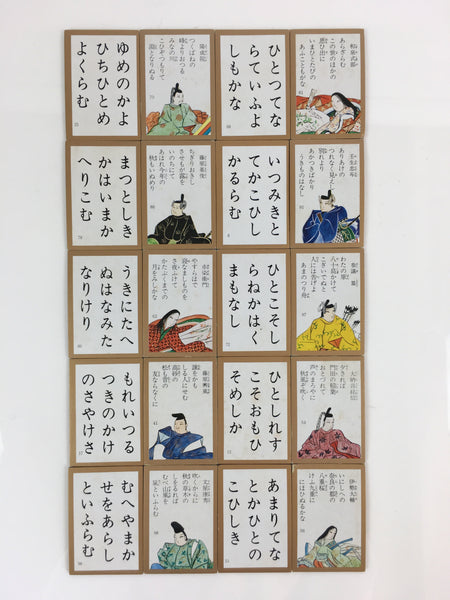 ゆめのかよ
ひちひとめ
よくらむ
陽成院
つくばねの
峰よりおつる
みなの川
こひぞつもりて
淵となりぬる
ひとつてな
らていふよ
しもかな
和泉式部
あらざらむ
この世のほかの
思ひ出に
いまひとたびの
あふこともがな
まつとしき
かはいまか
へりこむ
藤原基俊
ちぎりおきし
させもが露を
いのちにて
あはれ今年の
秋もいぬめり
いつみきと
てかこひし
かるらむ
壬生忠岑
ありあけの
つれなく見えし
別れより
あかつきばかり
うきものはなし
うきにたへ
ぬはなみた
なりけり
赤染衛門
やすらはで
寝なましものを
さ夜ふけて
かたぶくまでの
月を見しかな
ひとこそし
らねかはく
まもなし
参議篁
わたの原
八十島かけて
こぎいでぬと
人には告げよ
あまのつり舟
もれいつる
つきのかけ
のさやけさ
藤原興風
誰をかも
しる人にせむ
高砂の
松も昔の
友ならなくに
ひとしれす
こそおもひ
そめしか
大納言経信
夕されば
門田の稲葉
おとづれて
芦のまろやに
秋風ぞ吹く
むへやまか
せをあらし
といふらむ
文屋康秀
吹くからに
秋の草木の
しをるれば
むべ山風を
嵐といふらむ
あまりてな
とかひとの
こひしき
伊勢大輔
いにしへの
奈良の都の
八重桜
けふ九重に
にほひぬるかな